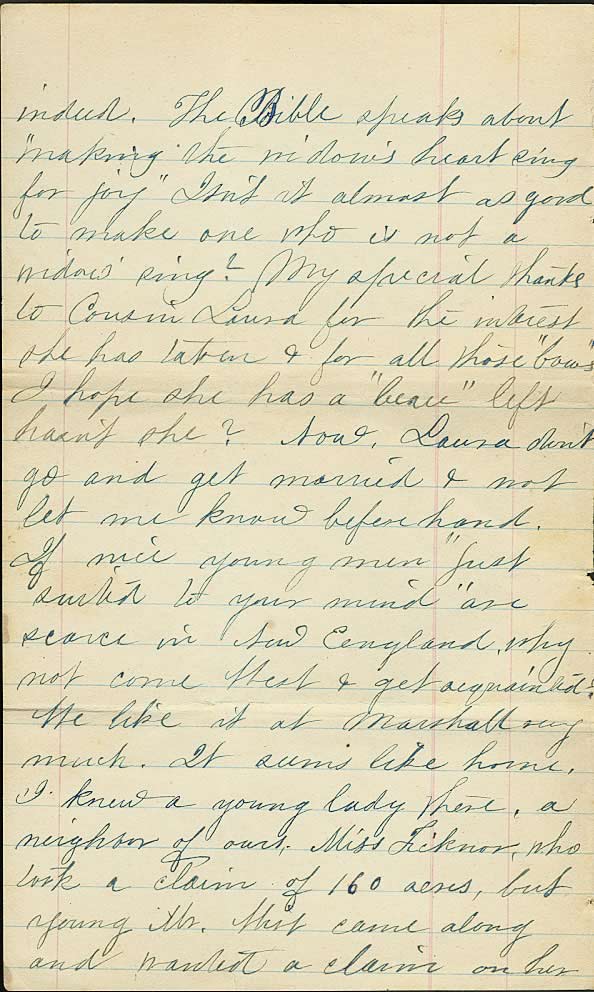 indeed. The Bible speaks about
"making the widow's heart sing
for joy" Isn't it almost as good
to make one who is not a
widow sing? My special thanks
to Cousin Laura for the interest
she has taken & for all those "bows"
I hope she has a "beau" left
hasn't she? Now, Laura don't
go and get married & not
let me know beforehand.
If nice young men "just
suited to your mind" are
scarce in New Eengland, why
not come West & get acquainted?
We like it at Marshall very
much. It seems like home.
I knew a young lady there, a
neighbor of ours, Miss Ticknor, who
took a claim of 160 acres, but
young Mr. came along
and wanted a claim on her